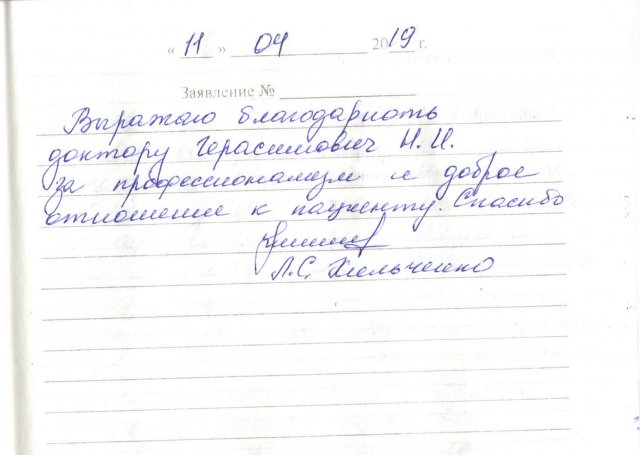 « 11 » 04 2019 г.
Заявление №
Выражаю благодарность
доктору Герасимович Н.И.
за профессионализм и доброе
отношение к пациенту. Спасибо
Л.С. Хильченко